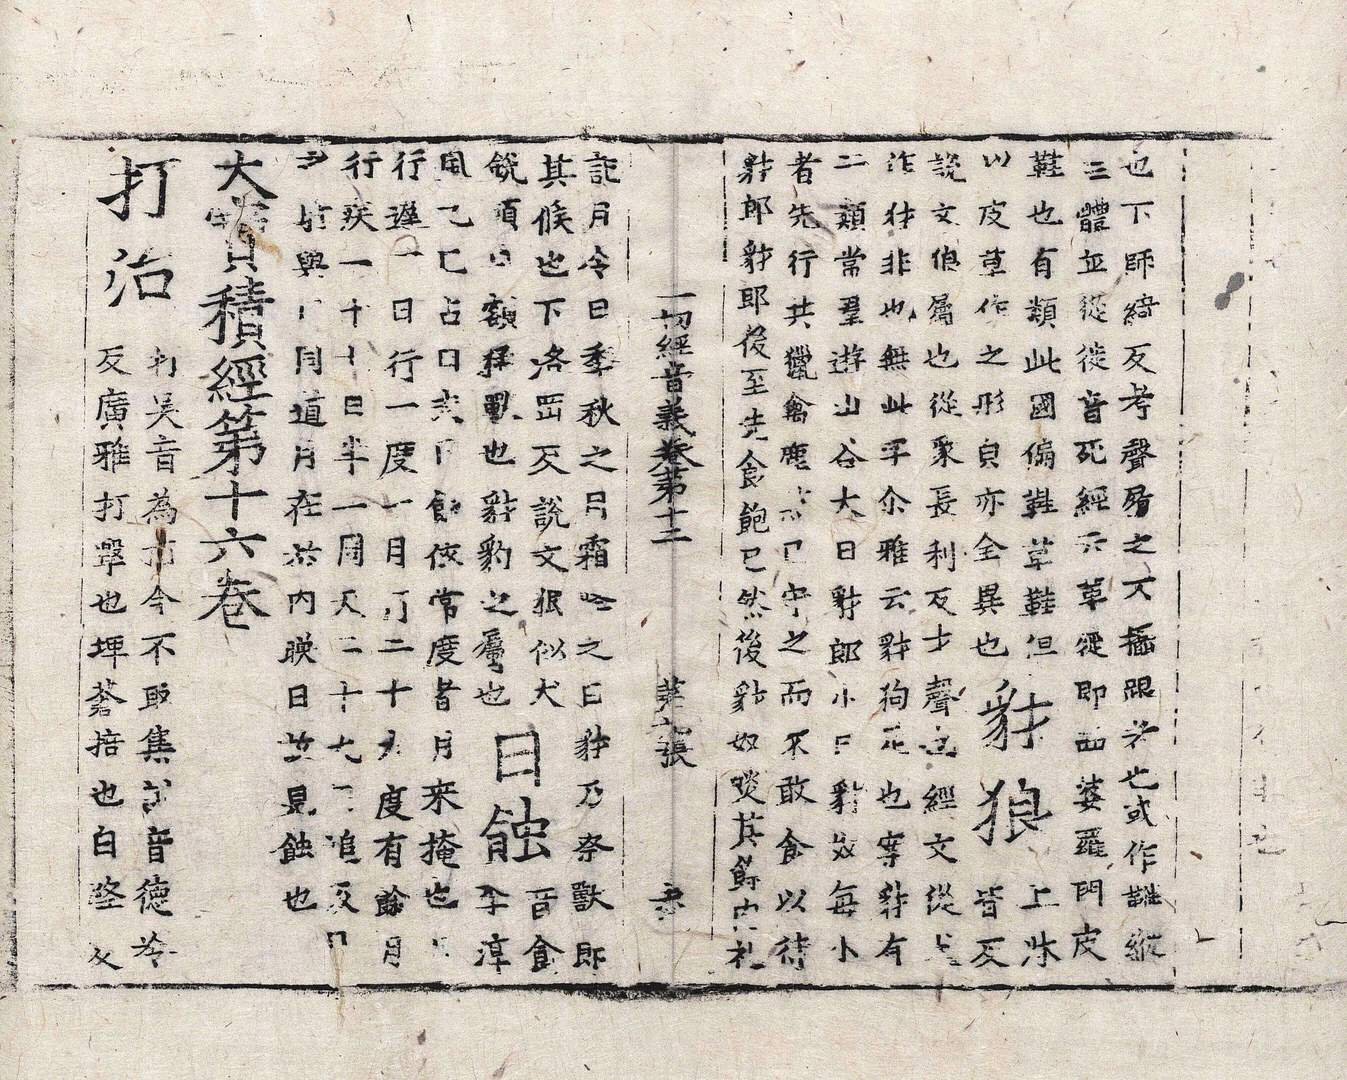 也下師綺反考聲屨之不攝跟者也或作䩕縱
三體並從徙音死經云革屣即西婆羅門皮
鞋也有類此國偏鞋草鞋但
以皮草作之形皃亦全異也
豺狼
上牀
皆反
說文俍屬也從豕長利反才聲也經文從犬
作犲非也無此字尒雅云豺狗足也案豺有
二類常羣遊山谷大曰豺郎小曰豺奴每小
者先行共獵禽鹿 已守之而不敢食以待
豺郎豺郎後至先食飽已然後豺奴啖其餘肉礼
一切經音義卷第十二 第六張
記月令曰季秋之月霜 之日豺乃祭獸即
其候也下洛當反說文狼似犬
銳頭白額猛獸也豺豹之屬也
日蝕
音食
李淳
風乙巳占曰 蝕依常度者月來掩也日
行遲一日行一度一月行二十九度有餘月
行疾一十 日半一周天二十九日追及日
與日同道月在於內映日故見蝕也
大寶積經第十六卷
打治
打吳音為頂今不取集訓音德冷
反廣雅打擊也埤蒼掊也白竪文